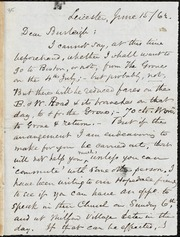 Leicester, June 15/62.
Dear Burleigh:
I cannot say, at this time
beforehand, whether I shall want to
go to Boston, or not, from the Grove
on the 4th July; - but probably, not.
But there will be reduced fares on the
B. & W. Road & its branches on that
day, to & fro the Grove;
to Grove & return. - But if the
arrangement I am endeavoring to
make for you be carried out, this
will not help you, unless you can
commute with some other person. I
have been trying to our Hopedale friends
to see if you can have an opp. to
speak in their Church on Sunday 6th
and at Milford Village late in the
day. If that can be effected, I